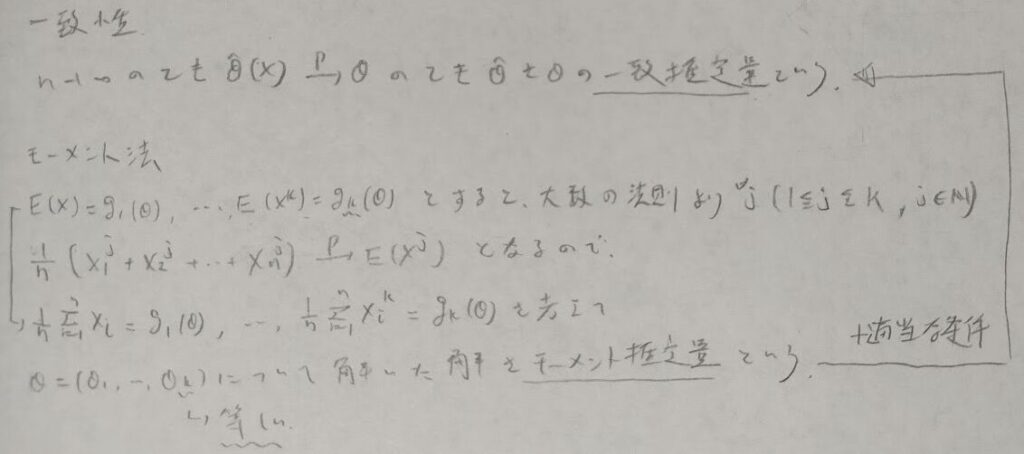 一致性
n→∞のとき θ̂(X) →ᵖ θ のとき θ̂をθの一致推定量という.
モーメント法
E(X)=g₁(θ), …, E(Xᵏ)=gₖ(θ) とすると、大数の法則より ∀j (1≦j≦k, j∈ℕ)
1/n (X₁ʲ+X₂ʲ+…+Xₙʲ) →ᵖ E(Xʲ) となるので.
1/n Σⁿᵢ₌₁ Xᵢ = g₁(θ), …, 1/n Σⁿᵢ₌₁ Xᵢᵏ = gₖ(θ) を考えて
+適当な条件
θ=(θ₁, …, θₖ) について解いた解をモーメント推定量という.
↳等しい.